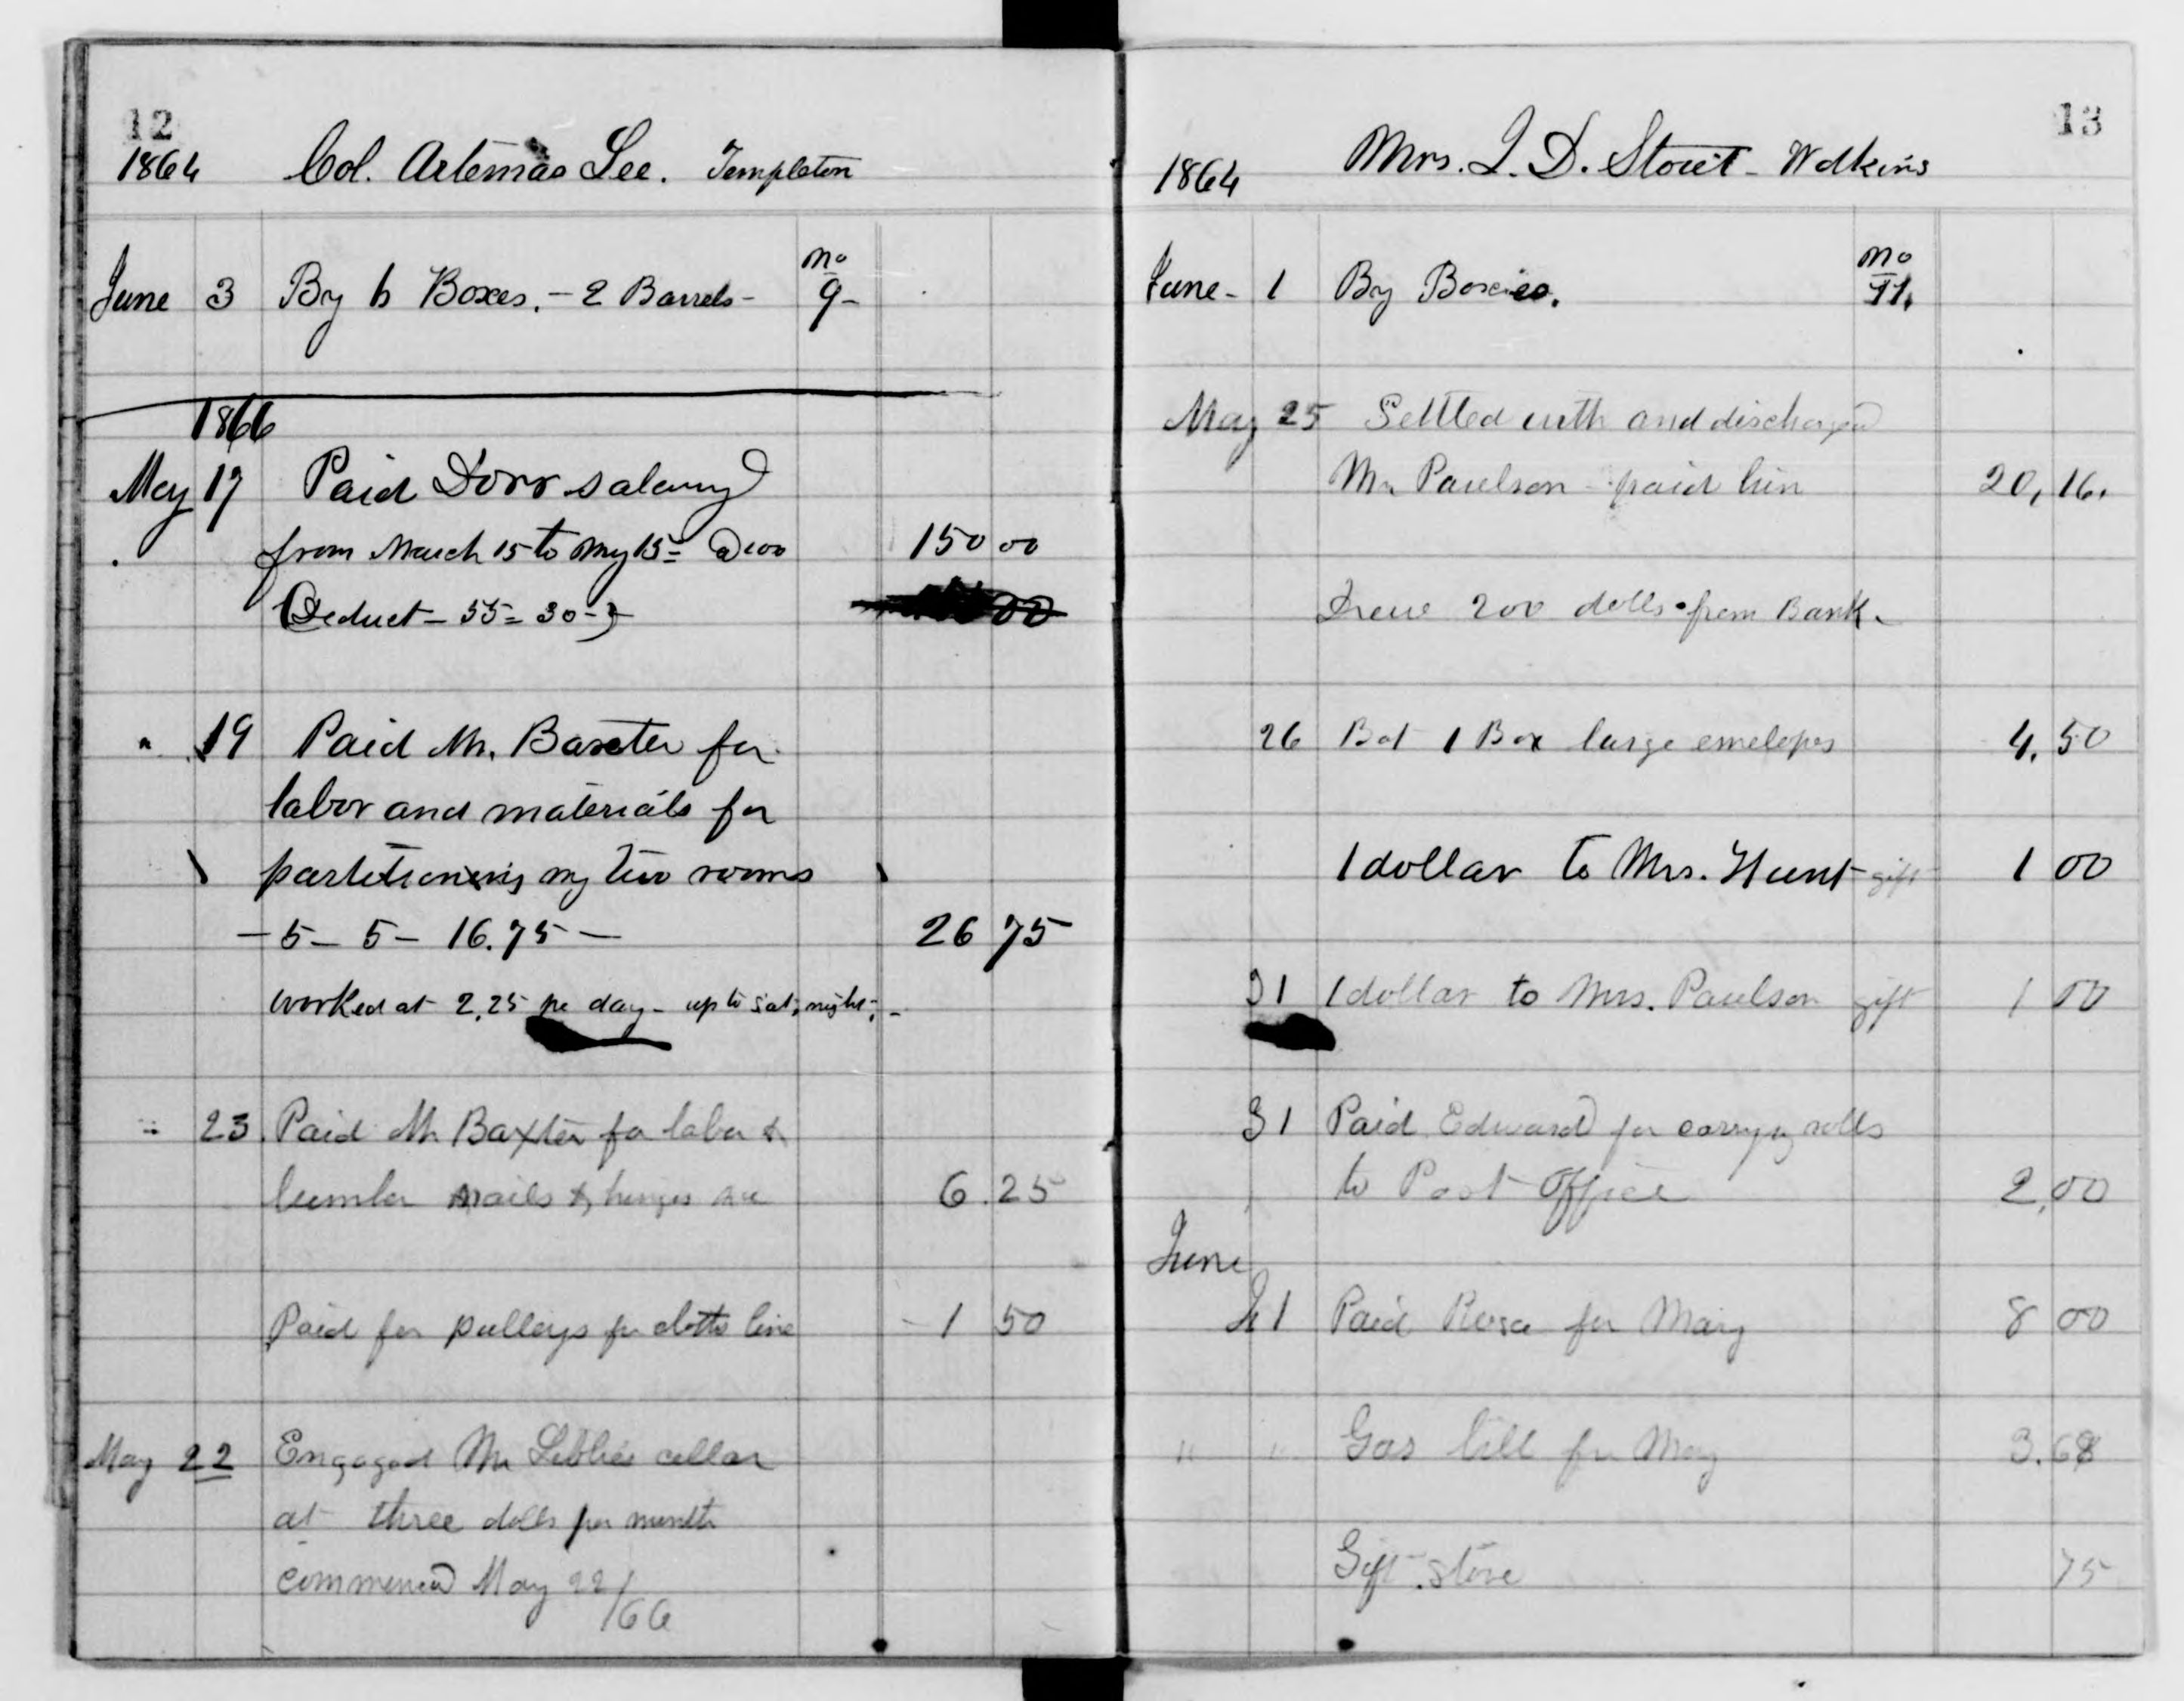 12
1864 Col. Artemas Lee. Templeton
No
June 3 By 6 Boxes. - 2 Barrels - 9 -
1866
May 17 Paid Dorr salary
from March 15 to My 15 = @ 100 150 00
(Deduct - 55 = 30 -) 00
" 19 Paid Mr. Baxter for
labor and materials for
partitioning my two rooms
- 5 - 5 - 16.75 - 26 75
worked at 2.25 pr day - up to sat, night, -
" 23 Paid Mr Baxter for labor &
lumber nails & hinges 6.25
Paid for pulleys for cloths line - 1 50
May 22 Engaged Mr cellar
at three dolls per month
commenced May 22/
/66
13
1864 Mrs. I. D. Stout - Watkins
No
June - 1 By Boxes. 11.
May 25 Settled with and discharged
Mr Paulson - paid him 20, 16.
Drew 200 dolls from Bank.
26 Bot 1 Box large emelopes 4.50
1 dollar to Mrs. Hunt - gift 1 00
31 1 dollar to Mrs. Paulson gift 1 00
31 Paid Edward for carrying rolls
to Post Office 2,00
June
1 Paid Rosa for May 8 00
" " Gas bill for May 3.68
Gift. stove 75